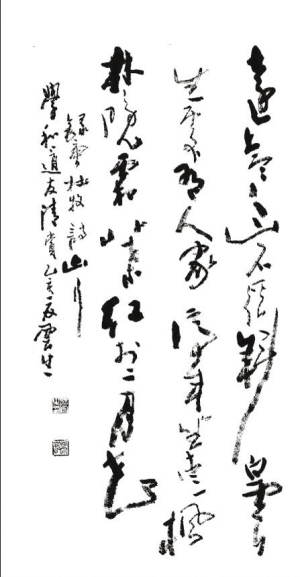 遠上寒山石徑斜白雲
生處有人家停車坐愛楓
林晚霜葉红於二月花
杜牧詩山行
學和道友清賞乙亥雲生